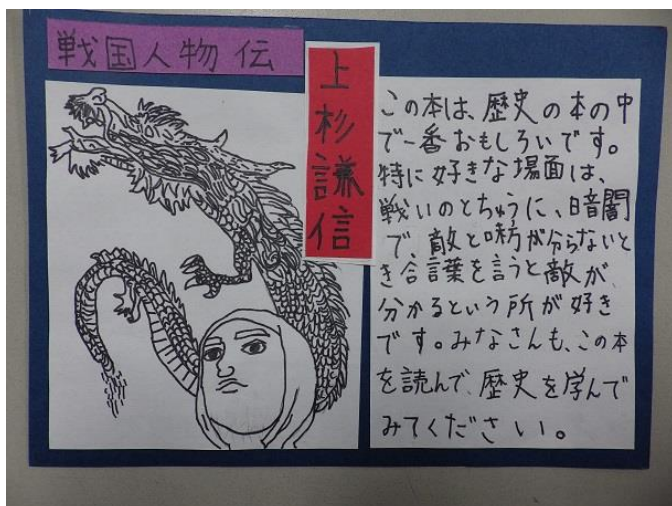 戦国人物伝
上杉謙信
この本は、歴史の本の中
で一番おもしろいです。
特に好きな場面は、
戦いのとちゅうに、暗闇
で、敵と味方が分らないと
き合言葉を言うと敵が、
分かるという所が好き
です。みなさんも、この本
を読んで、歴史を学んで
みてください。